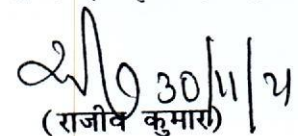 30/11/21
(राजीव कुमार)